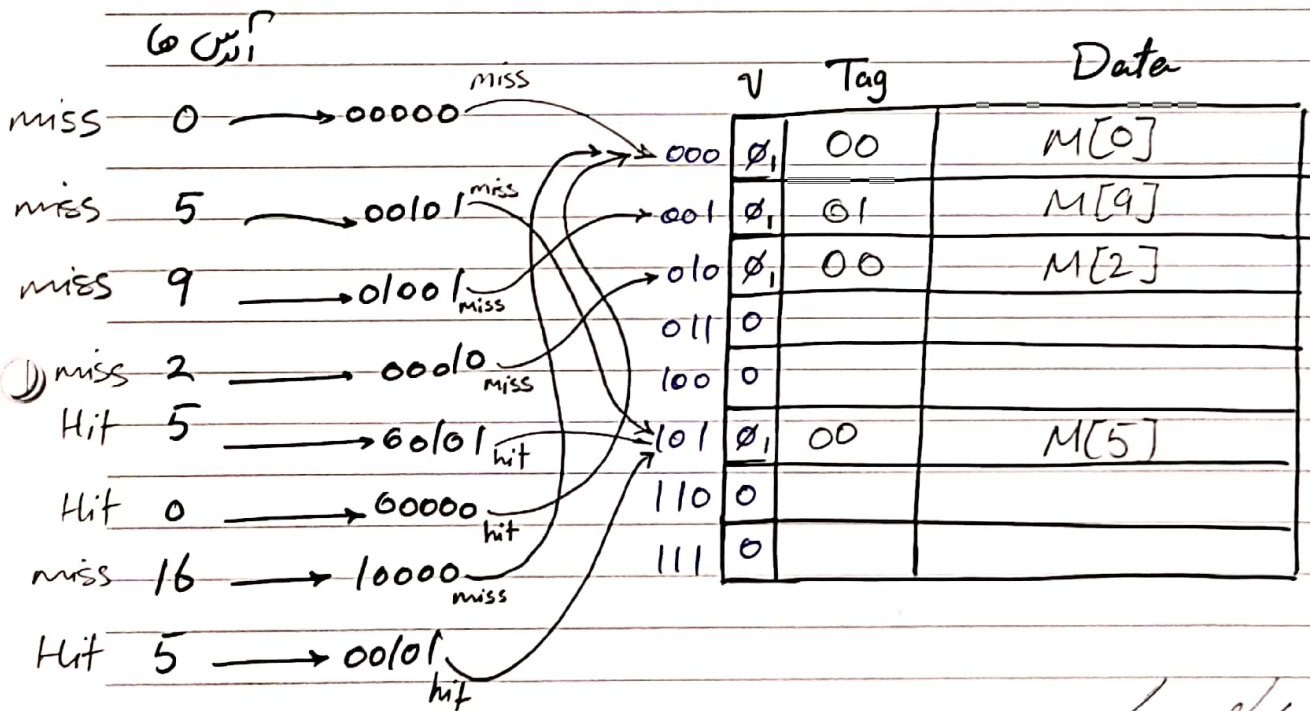 آدرس ها
V Tag Data
miss 0 → 00000 miss
miss 5 → 00101 miss
miss 9 → 01001 miss
miss 2 → 00010 miss
Hit 5 → 00101 hit
Hit 0 → 00000 hit
miss 16 → 10000 miss
Hit 5 → 00101 hit
000 0 1 00 M[0]
001 0 1 01 M[9]
010 0 1 00 M[2]
011 0
100 0
101 0 1 00 M[5]
110 0
111 0